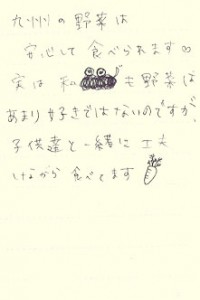 九州の野菜は
安心して食べられます∞
実は私も野菜は
あまり好きではないのですが、
子供達と一緒に工夫
しながら食べてます